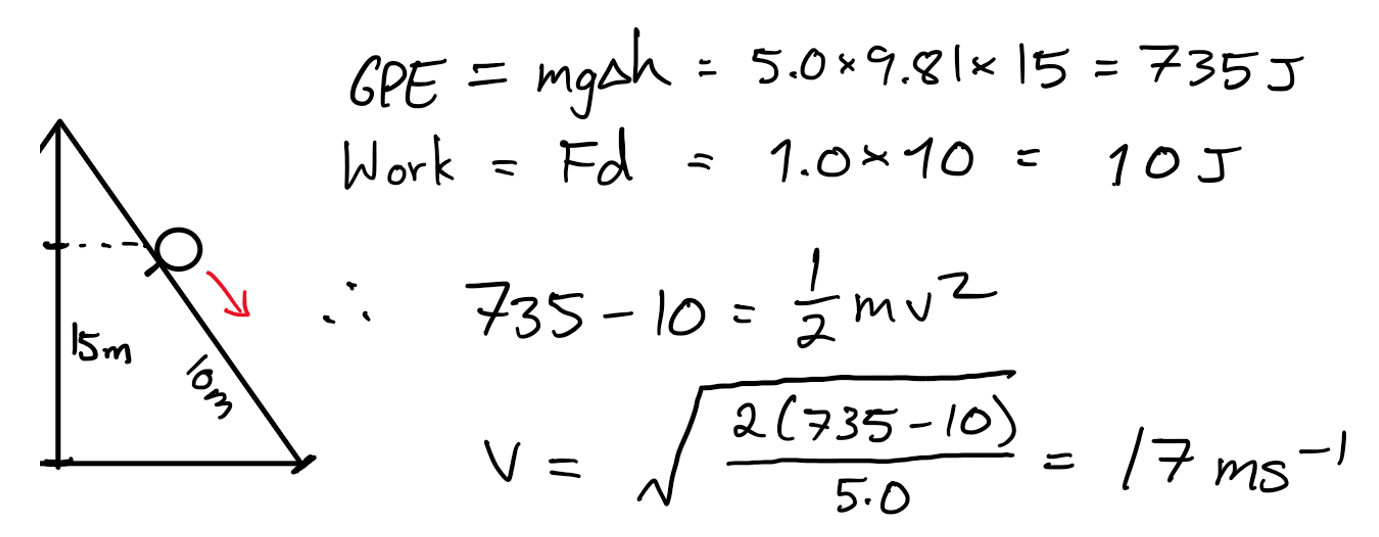 GPE = mgΔh = 5.0×9.81×15 = 735 J
Work = Fd = 1.0×10 = 10 J
15m
10m
∴ 735 - 10 = 1/2 mv²
V = √(2(735-10)/5.0) = 17 ms⁻¹